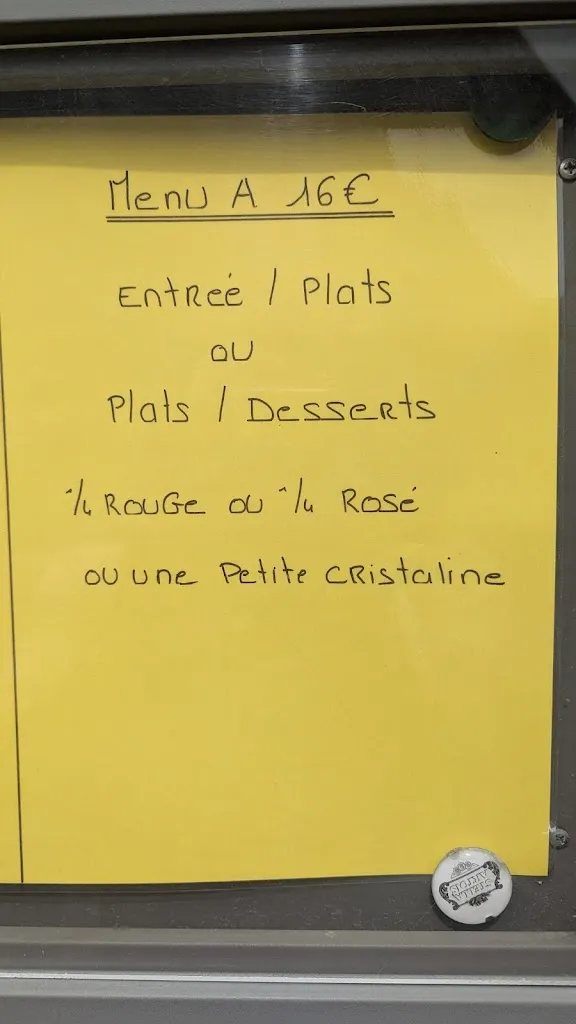 Menu A 16€
Entreé / Plats
ou
Plats / Desserts
1/4 Rouge ou 1/4 Rosé
ou une Petite Cristaline